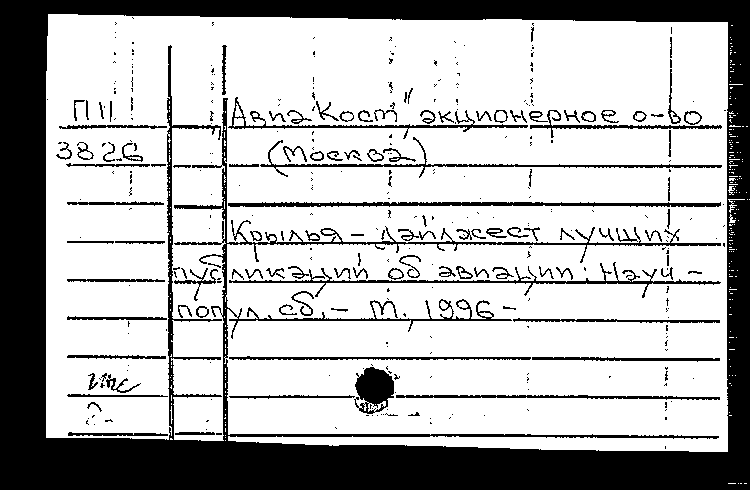 П11 "АвиаКост", акционерное о-во
3826 (Москва)
Крылья – дайджест лучших
публикаций об авиации: Науч.-
попул. сб. – М., 1996 –